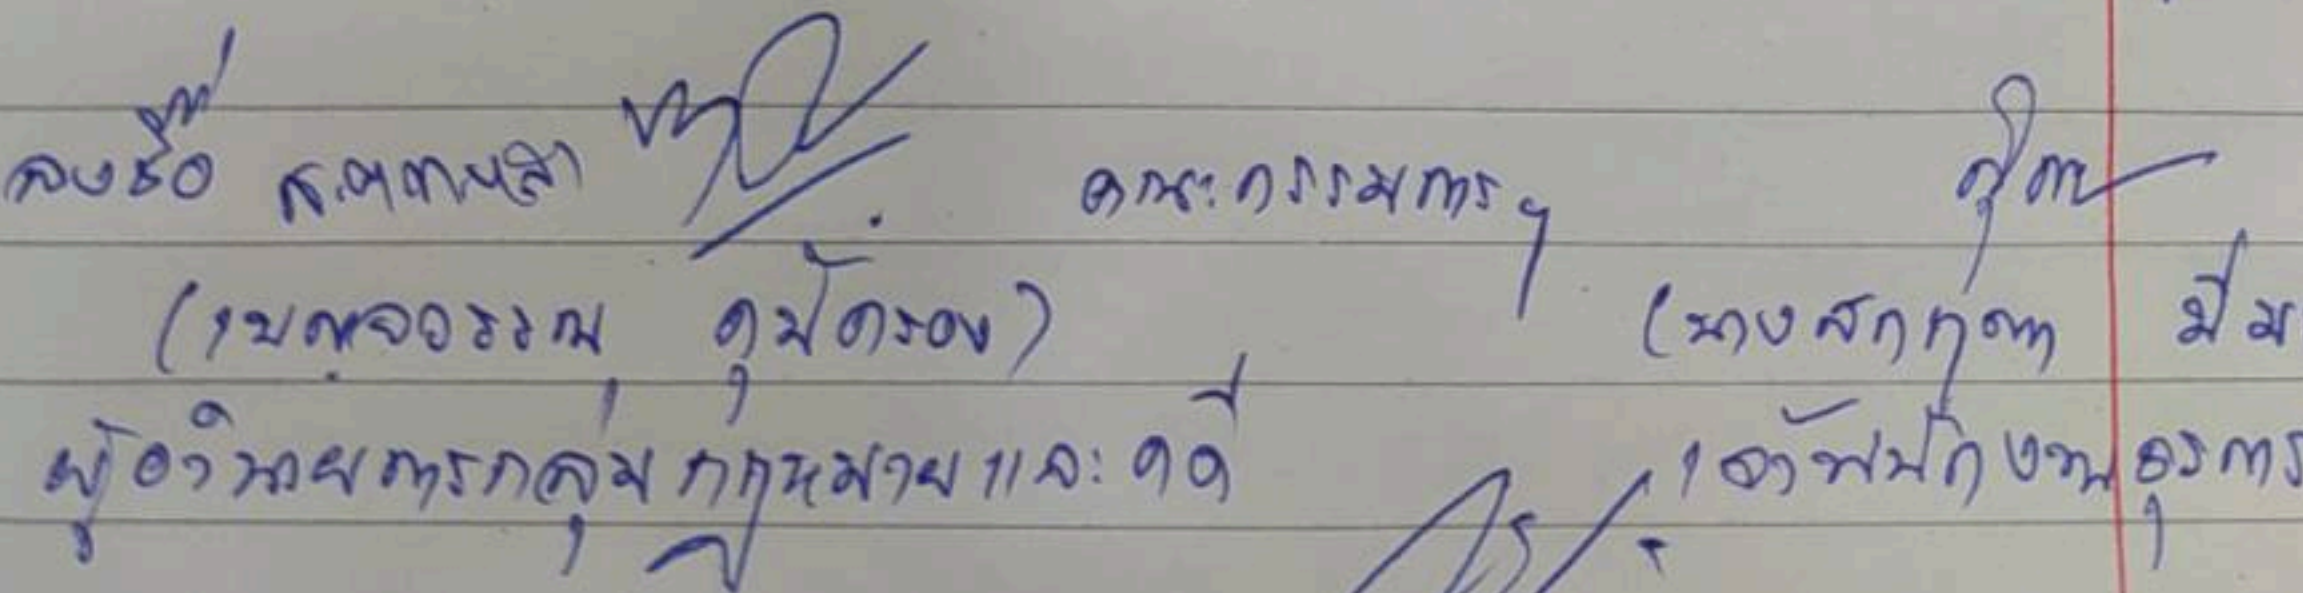 ลงชื่อ คณะกรรมการฯ
(เบญจวรรณ คุ้มครอง) (นาง มีม
ผู้อำนวยการกลุ่มกฎหมายและคดี เจ้าพนักงานธุรการ